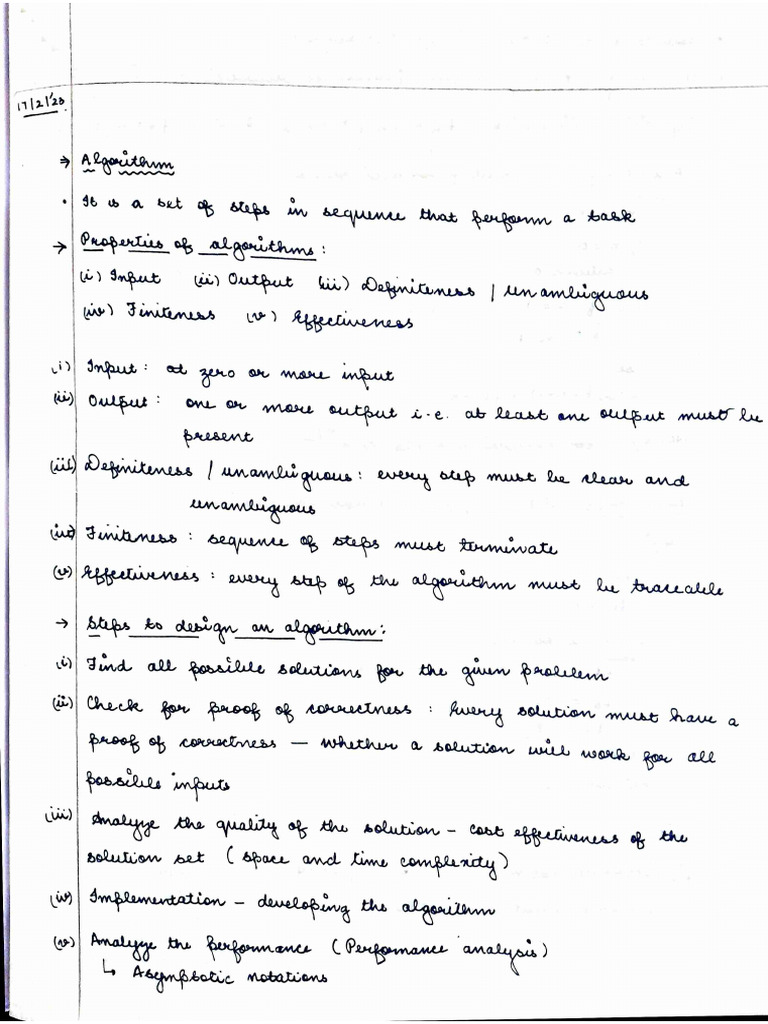 17/2/'23.
→ Algorithm
• It is a set of steps in sequence that perform a task
→ Properties of algorithms :
(i) Input (ii) Output (iii) Definiteness / unambiguous
(iv) Finiteness (v) Effectiveness
(i) Input : at zero or more input
(ii) Output : one or more output i.e. at least one output must be
present
(iii) Definiteness / unambiguous : every step must be clear and
unambiguous
(iv) Finiteness : sequence of steps must terminate
(v) Effectiveness : every step of the algorithm must be traceable
→ Steps to design an algorithm :
(i) Find all possible solutions for the given problem
(ii) Check for proof of correctness : Every solution must have a
proof of correctness — whether a solution will work for all
possible inputs
(iii) Analyze the quality of the solution – cost effectiveness of the
solution set ( space and time complexity )
(iv) Implementation – developing the algorithm
(v) Analyze the performance ( Performance analysis )
↳ Asymptotic notations